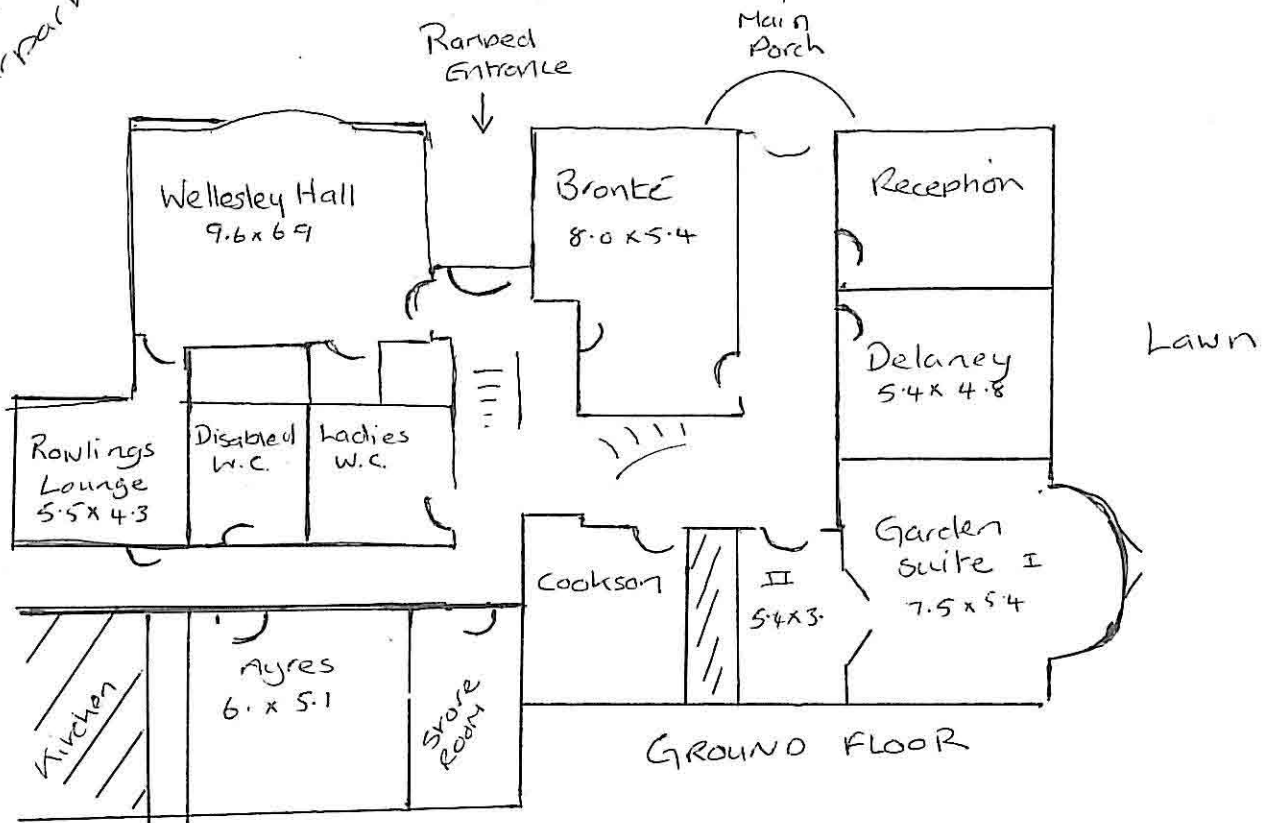 Ramped
Entrance
Main
Porch
Wellesley Hall
9.6 x 6.9
Bronté
8.0 x 5.4
Reception
Delaney
5.4 x 4.8
Lawn
Rowlings
Lounge
5.5 x 4.3
Disabled
W.C.
Ladies
W.C.
Cookson
II
5.4 x 3.
Garden
Suite I
7.5 x 5.4
Kitchen
Ayres
6. x 5.1
Store
Room
GROUND FLOOR